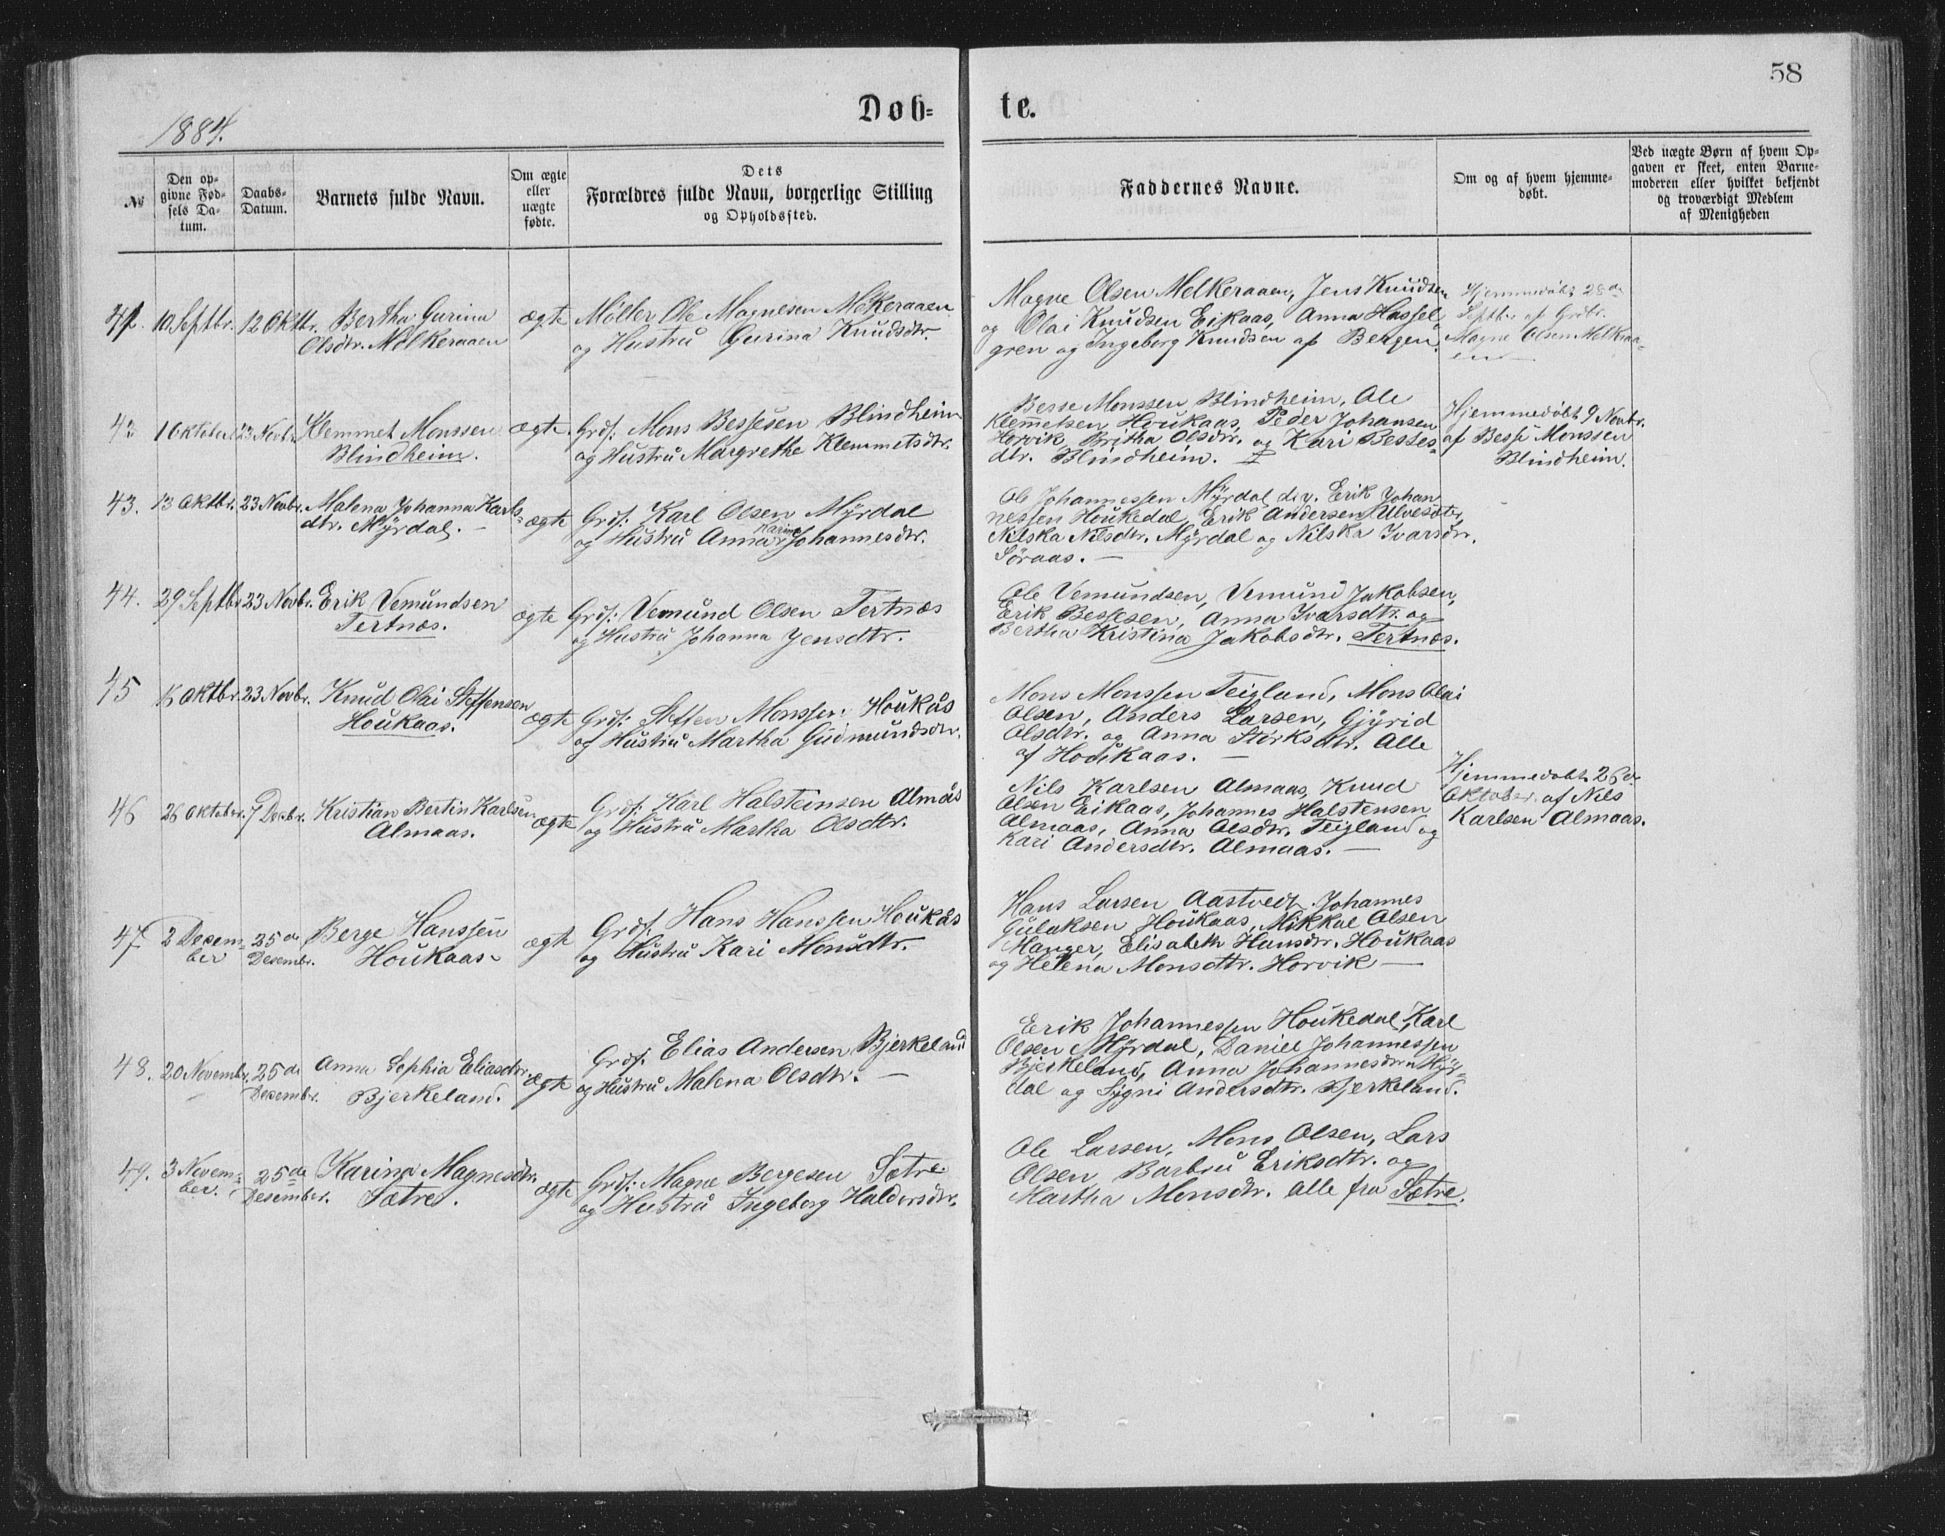 58
1884.
Døb-
te.
№
Den op-
givne Fød-
sels Da-
tum.
Daabs-
Datum.
Barnets fulde Navn.
Om ægte
eller
uægte
fødte.
Dets
Forældres fulde Navn, borgerlige Stilling
og Opholdssted.
Faddernes Navne.
Om og af hvem hjemme-
døbt.
Ved uægte Børn af hvem Op-
gaven er skeet, enten Barne-
moderen eller hvilket bekjendt
og troværdigt Medlem
af Menigheden
41. 10 Septbr. 12 Oktbr. Bertha Gurina
Olsdtr. Melkeraaen
ægte
Møller Ole Magnesen Melkeraaen
og Hustru Gurina Knudsdtr.
Magne Olsen Melkeraaen, Jens Knudsen
og Olai Knudsen Eikaas, Anna Hassel-
gren og Ingeborg Knudsen af Bergen.
Hjemmedøbt 28de
Septbr af Grdbr.
Magne Olsen Melkraa-
en
42 1 Oktober 23 Novbr. Klemmet Monssen
Blindheim.
ægte.
Grdf. Mons Bessesen Blindheim
og Hustru Margrethe Klemmetsdtr.
Besse Monssen Blindheim, Ole
Klemetsen Houkaas, Peder Johansen
Horvik, Britha Olsdtr. og Kari Besses-
dtr. Blindheim.
Hjemmedøbt 9 Novbr.
af Besse Monssen
Blindheim.
43. 13 Oktbr. 23 Novbr. Malena Johanna Karls-
dtr. Myrdal.
ægte
Grdf: Karl Olsen Myrdal
og Hustru Anna Karina Johannesdtr.
Ole Johannessen Myrdal, Erik Johan
nessen Houkedal, Erik Andersen Ulvesæter,
Nilska Nilsdtr. Myrdal og Nilska Ivarsdtr.
Søraas.
44. 29 Septbr 23 Novbr. Erik Vemundsen
Tertnæs.
ægte
Grdf: Vemund Olsen Tertnæs
og Hustru Johanna Jensdtr.
Ole Vemundsen, Vemund Jakobsen,
Erik Bessesen, Anna Ivarsdtr. og
Bertha Kristina Jakobsdtr. Tertnæs.
45 Oktbr. 23 Novbr. Knud Olai Steffensen
Houkaas.
ægte
Grdf: Steffen Monssen Houkås
og Hustru Martha Gudmundsdtr.
Mons Monssen Teigland, Mons Olai
Olsen, Anders Larsen, Gjyrid
Olsdtr. og Anna Størksdtr. Alle
af Houkaas.
46 26 Oktober. 7 Decbr. Kristian Bertin Karlsen
Almaas.
ægte
Grdf: Karl Halsteinsen Almås
og Hustru Martha Olsdtr.
Nils Karlsen Almaas, Knud
Olsen Eikaas, Johannes Halstensen
Almaas, Anna Olsdtr. Teigland og
Kari Andersdtr. Almaas.
Hjemmedøbt 26de
Oktober af Nils
Karlsen Almaas.
47. 2 Decem-
ber
25de
Desembr.
Berge Hanssen
Houkaas.
ægte
Grdf. Hans Hanssen Houkås
og Hustru Kari Monsdtr.
Hans Larsen Aastvedt, Johannes
Gulaksen Houkaas, Mikkal Olsen
Manger, Elisabeth Hansdtr. Houkaas
og Helena Monsdtr. Horvik
48. 20 Novembr. 25de
Desembr.
Anna Sophia Eliasdtr.
Bjerkeland.
ægte
Grdf. Elias Andersen Bjerkeland
og Hustru Malena Olsdtr.
Erik Johannessen Houkedal, Karl
Olsen Myrdal, Daniel Johannessen
Bjerkeland, Anna Johannesdtr. Myr-
dal og Sygni Andersdtr. Bjerkeland.
49. 3 Novem-
ber.
25de
Desember.
Karina Magnesdtr.
Sætre.
ægte
Grdf: Magne Bergesen Sætre
og Hustru Ingeborg Haldorsdtr.
Ole Larsen, Mons Olsen, Lars
Olsen, Barbru Eriksdtr. og
Martha Monsdtr. Alle fra Sætre.